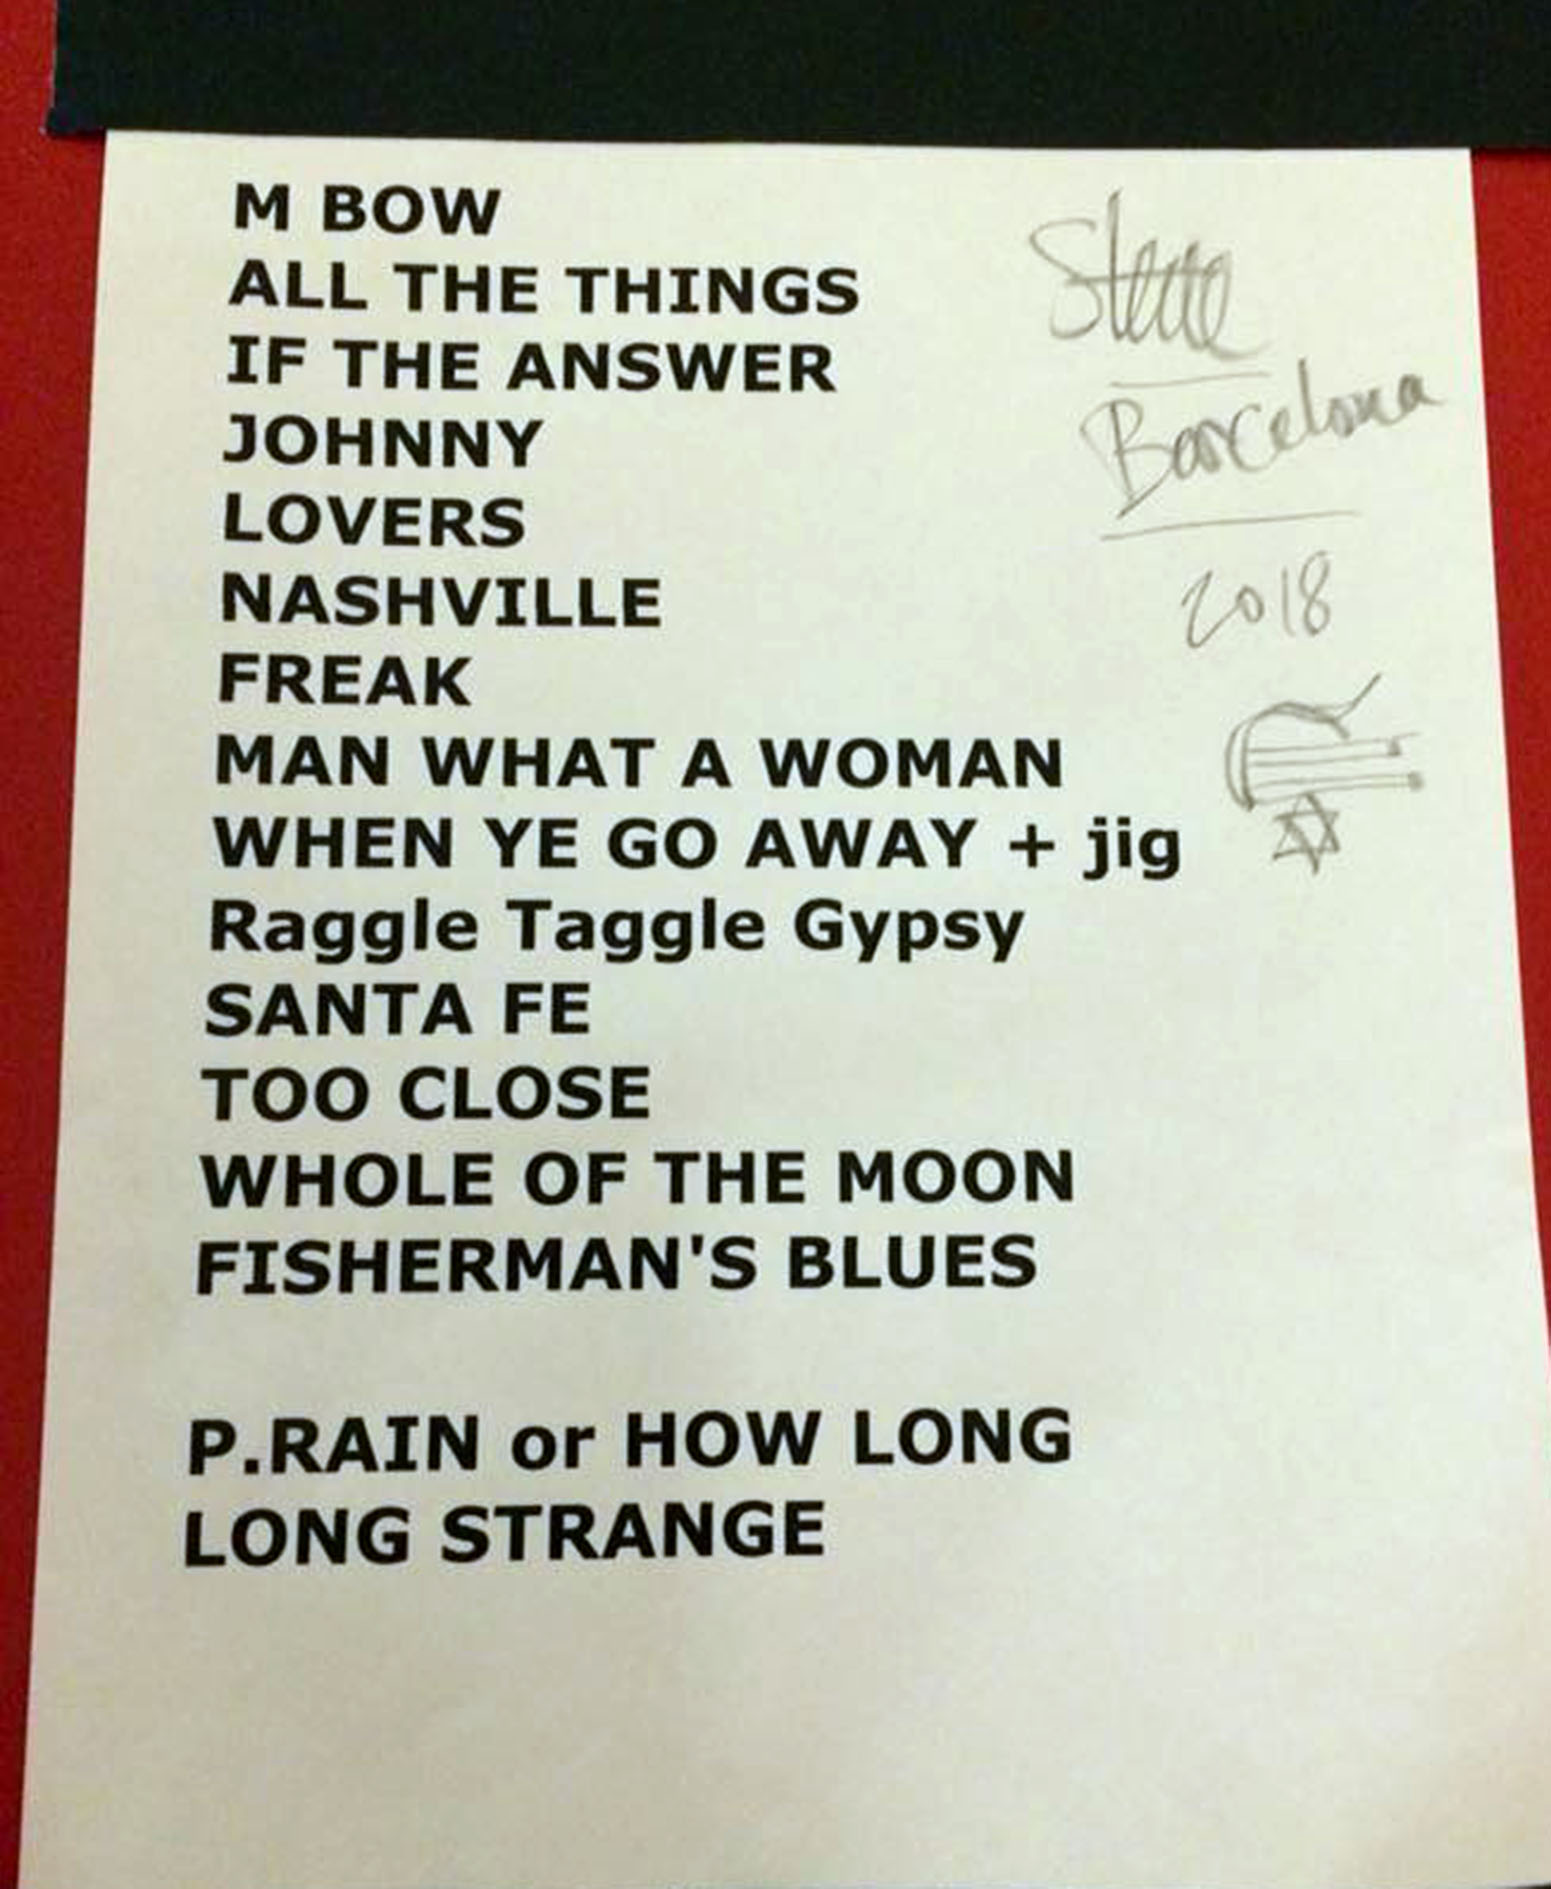 M BOW
ALL THE THINGS
IF THE ANSWER
JOHNNY
LOVERS
NASHVILLE
FREAK
MAN WHAT A WOMAN
WHEN YE GO AWAY + jig
Raggle Taggle Gypsy
SANTA FE
TOO CLOSE
WHOLE OF THE MOON
FISHERMAN'S BLUES
P.RAIN or HOW LONG
LONG STRANGE
Steve
Barcelona
2018